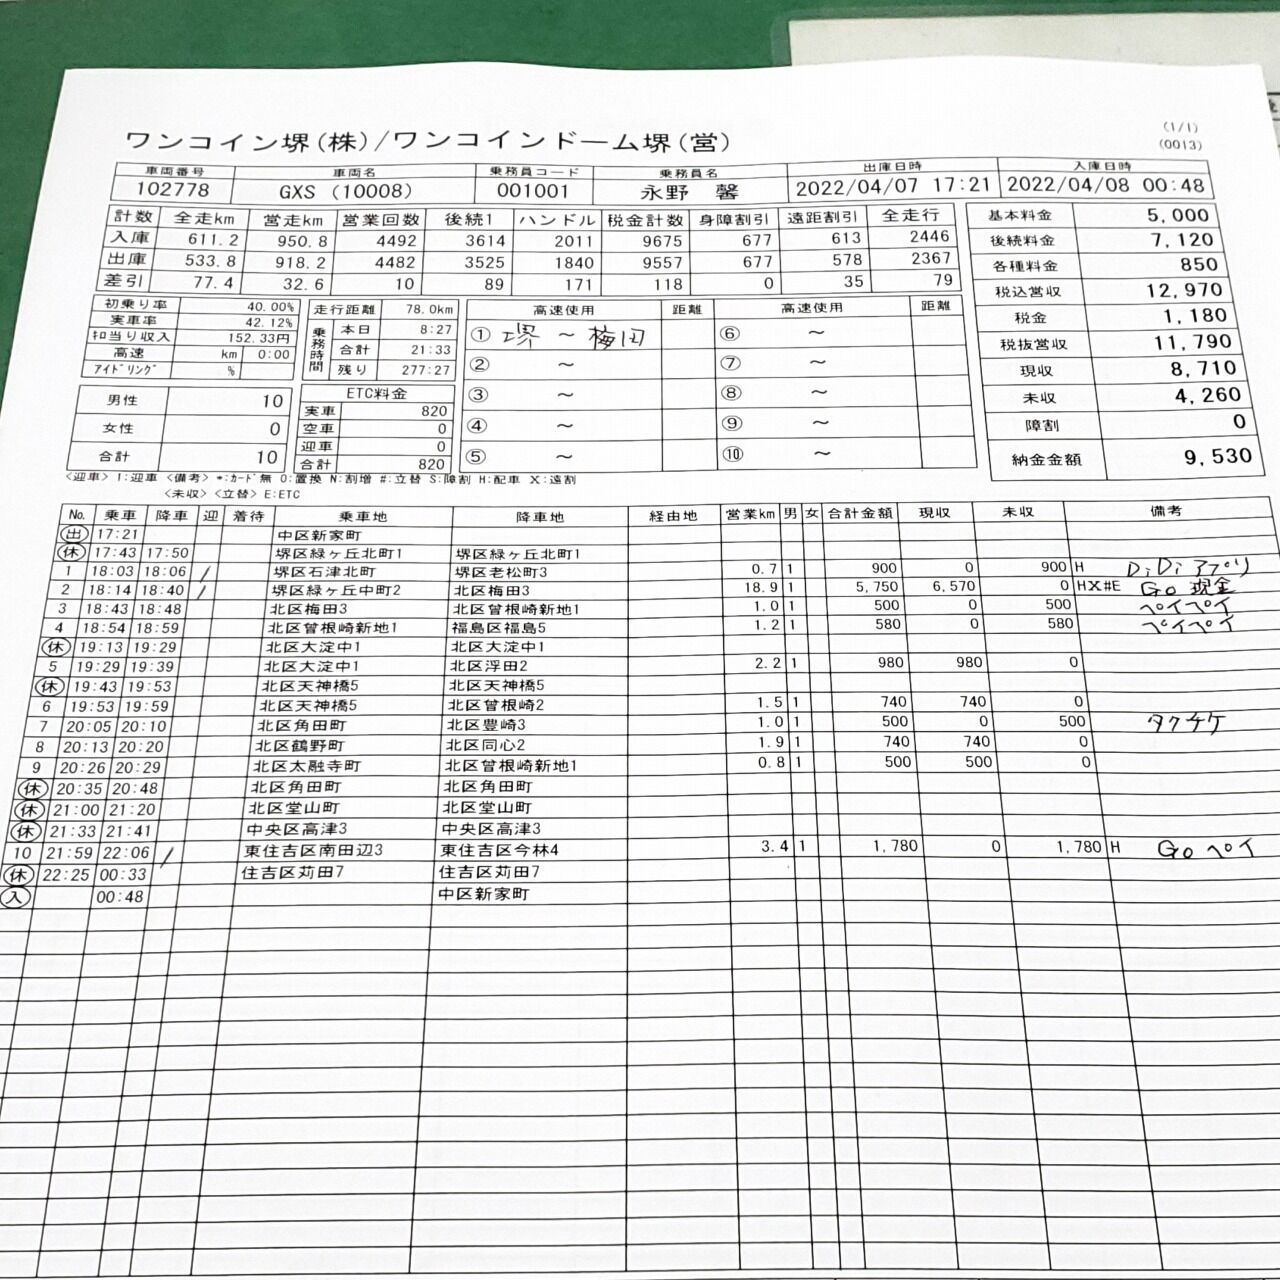 ワンコイン堺(株)/ワンコインドーム堺(営)
(1/1)
(0013)
車両番号 車両名 乗務員コード 乗務員名 出庫日時 入庫日時
102778 GXS (10008) 001001 永野 馨 2022/04/07 17:21 2022/04/08 00:48
計数 全走km 営走km 営業回数 後続1 ハンドル 税金計数 身障割引 遠距割引 全走行
入庫 611.2 950.8 4492 3614 2011 9675 677 613 2446
出庫 533.8 918.2 4482 3525 1840 9557 677 578 2367
差引 77.4 32.6 10 89 171 118 0 35 79
基本料金 5,000
後続料金 7,120
各種料金 850
税込営収 12,970
税金 1,180
税抜営収 11,790
現収 8,710
未収 4,260
障割 0
納金金額 9,530
初乗り率 40.00%
実車率 42.12%
キロ当り収入 152.33円
高速 km 0:00
アイドリング %
走行距離 78.0km
乗務時間
本日 8:27
合計 21:33
残り 277:27
高速使用 距離 高速使用 距離
① 堺 ～ 梅田 ⑥ ～
② ～ ⑦ ～
③ ～ ⑧ ～
④ ～ ⑨ ～
⑤ ～ ⑩ ～
男性 10
女性 0
合計 10
ETC料金
実車 820
空車 0
迎車 0
合計 820
<迎車> 1:迎車 <備考> *:カード無 O:置換 N:割増 #:立替 S:障割 H:配車 X:遠割
<未収> <立替> E:ETC
No. 乗車 降車 迎 着待 乗車地 降車地 経由地 営業km 男 女 合計金額 現収 未収 備考
出 17:21 中区新家町
休 17:43 17:50 堺区緑ヶ丘北町1 堺区緑ヶ丘北町1
1 18:03 18:06 / 堺区石津北町 堺区老松町3 0.7 1 900 0 900 H DiDiアプリ
2 18:14 18:40 / 堺区緑ヶ丘中町2 北区梅田3 18.9 1 5,750 6,570 0 HX#E Go 現金
3 18:43 18:48 北区梅田3 北区曽根崎新地1 1.0 1 500 0 500 ペイペイ
4 18:54 18:59 北区曽根崎新地1 福島区福島5 1.2 1 580 0 580 ペイペイ
休 19:13 19:29 北区大淀中1 北区大淀中1
5 19:29 19:39 北区大淀中1 北区浮田2 2.2 1 980 980 0
休 19:43 19:53 北区天神橋5 北区天神橋5
6 19:53 19:59 北区天神橋5 北区曽根崎2 1.5 1 740 740 0
7 20:05 20:10 北区角田町 北区豊崎3 1.0 1 500 0 500 タクチケ
8 20:13 20:20 北区鶴野町 北区同心2 1.9 1 740 740 0
9 20:26 20:29 北区太融寺町 北区曽根崎新地1 0.8 1 500 500 0
休 20:35 20:48 北区角田町 北区角田町
休 21:00 21:20 北区堂山町 北区堂山町
休 21:33 21:41 中央区高津3 中央区高津3
10 21:59 22:06 / 東住吉区南田辺3 東住吉区今林4 3.4 1 1,780 0 1,780 H Go ペイ
休 22:25 00:33 住吉区苅田7 住吉区苅田7
入 00:48 中区新家町